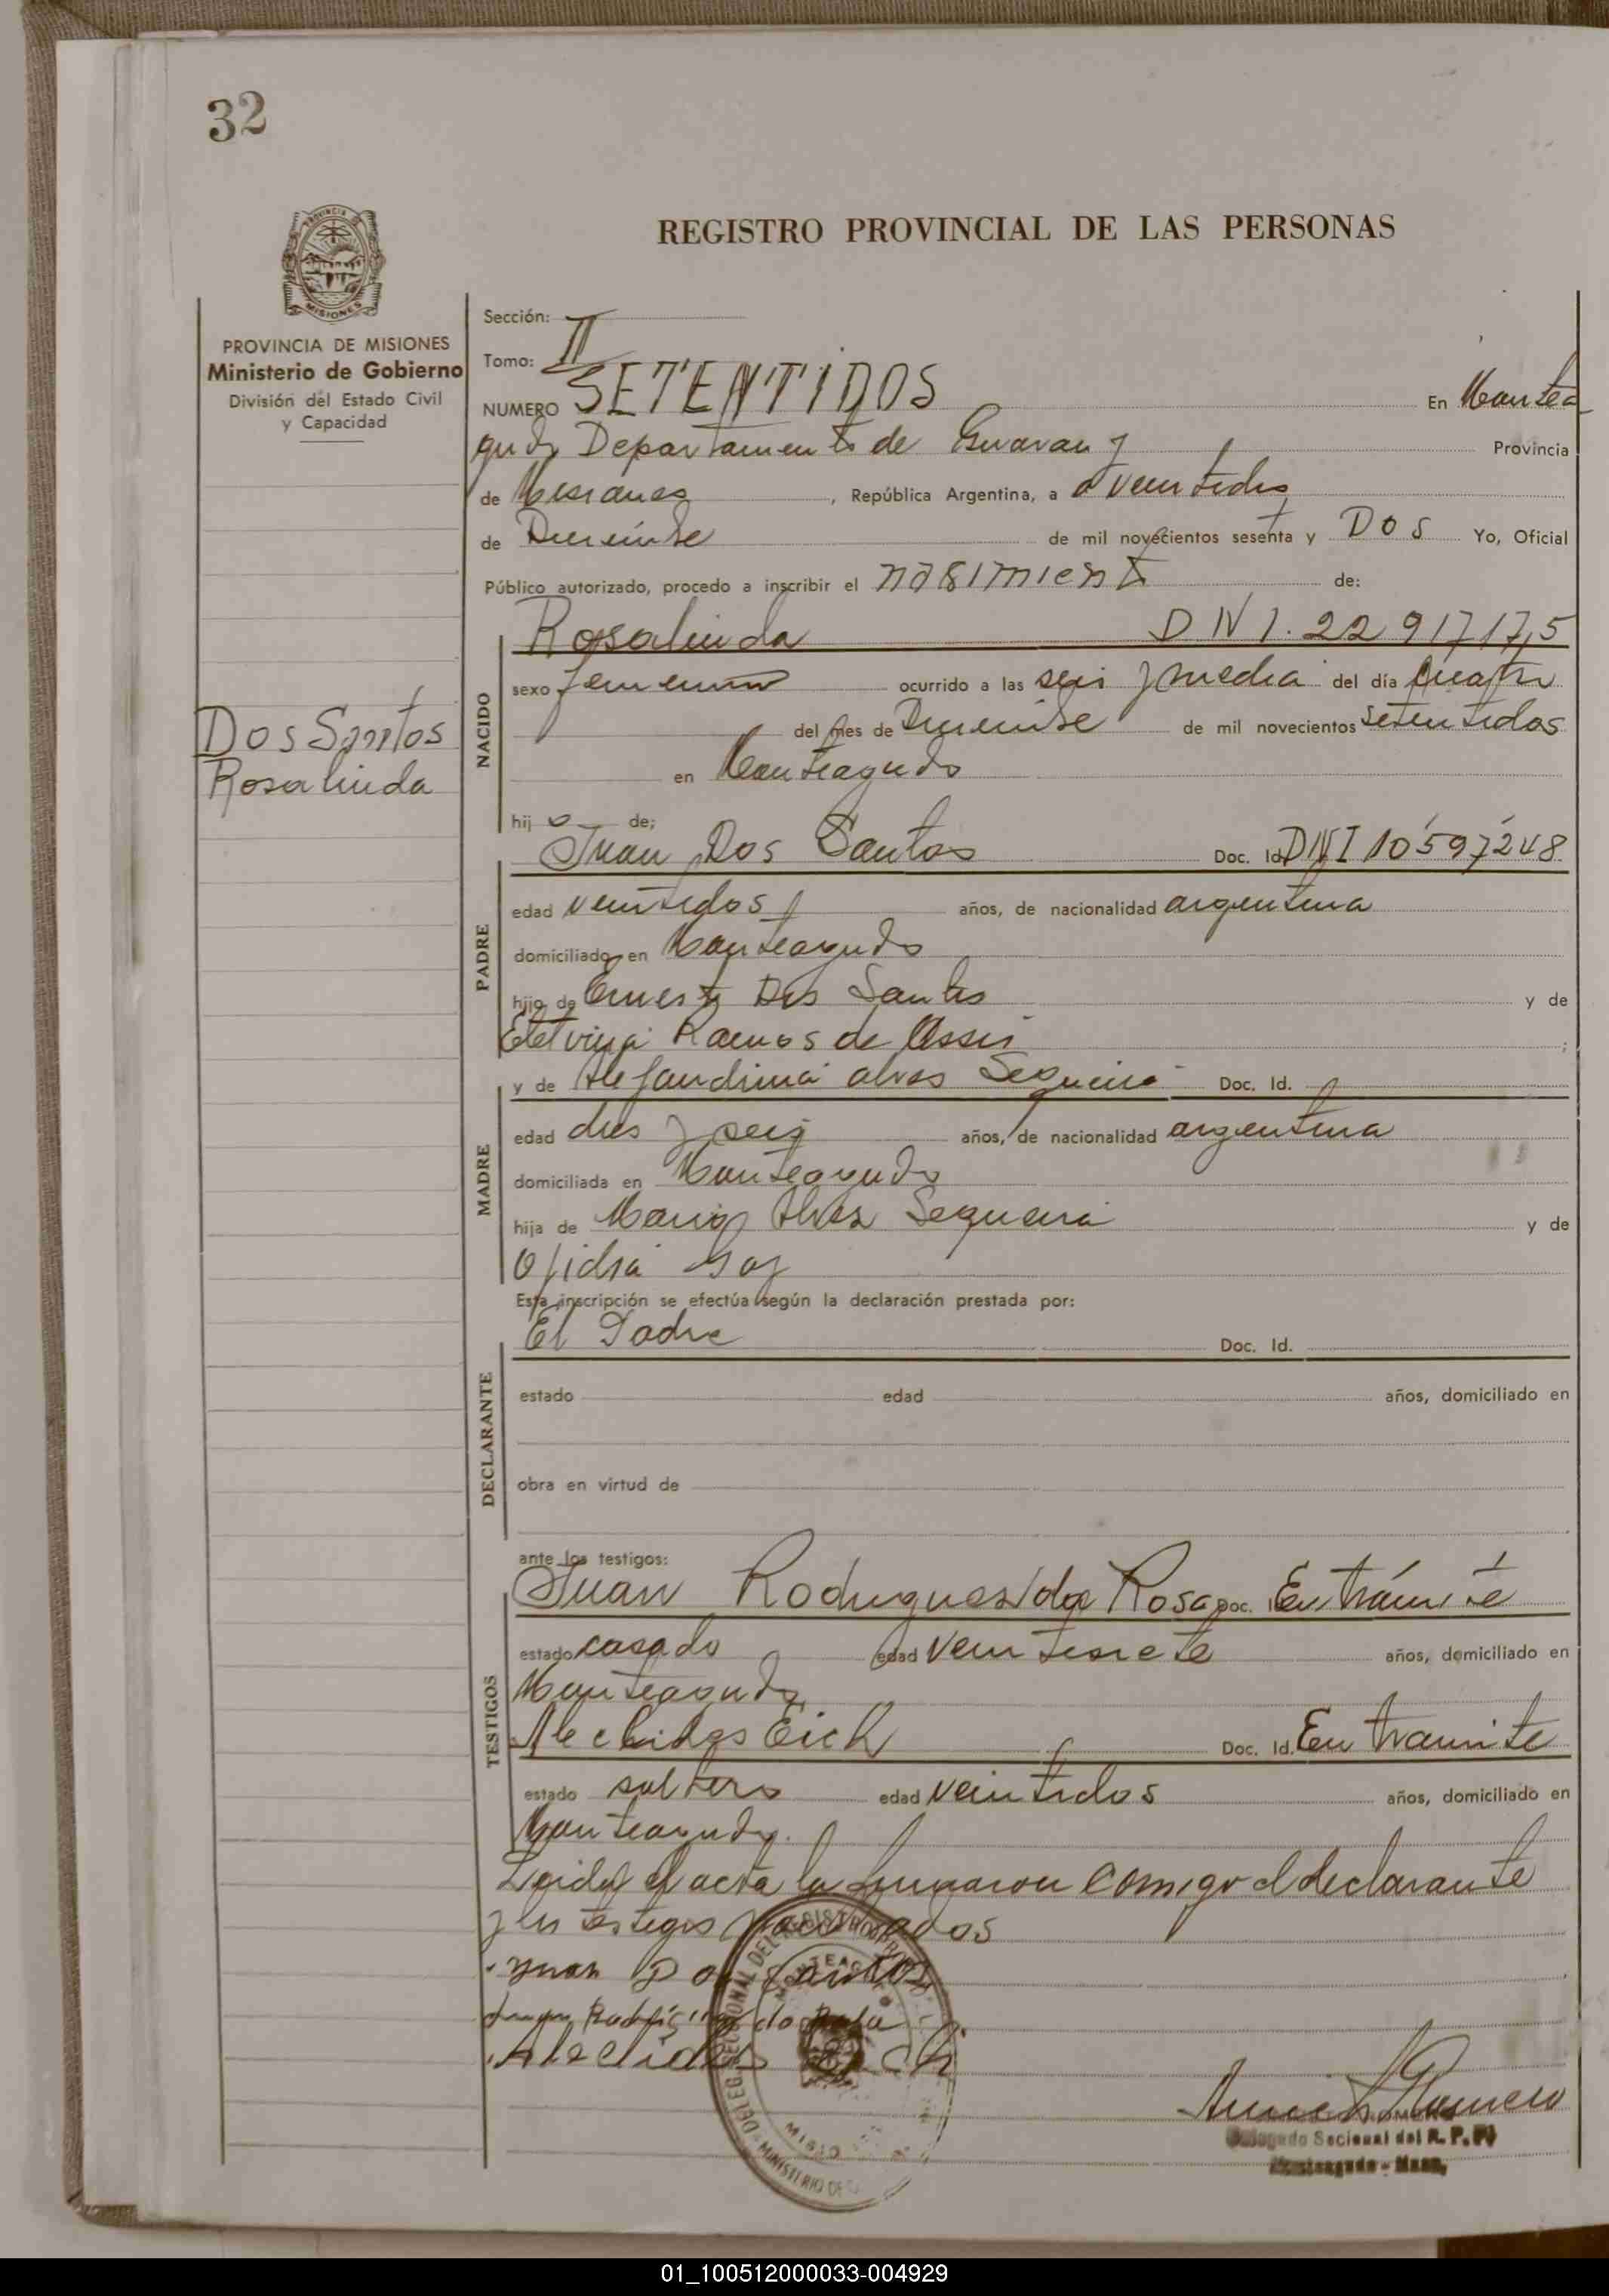 32
REGISTRO PROVINCIAL DE LAS PERSONAS
PROVINCIA DE MISIONES
Ministerio de Gobierno
División del Estado Civil
y Capacidad
Dos Santos
Rosalinda
Sección:
Tomo: II
NUMERO SETENTIDOS En Montea
gudo Departamento de Guarany Provincia
de Misiones, República Argentina, a veintidos
de Diciembre de mil novecientos sesenta y DOS Yo, Oficial
Público autorizado, procedo a inscribir el nasimiento de:
Rosalinda DNI. 22917175
NACIDO
sexo femenino ocurrido a las seis y media del día cuatro
del mes de Diciembre de mil novecientos setentidos
en Monteagudo
hij o de;
Juan Dos Santos Doc. Id DNI 10597248
PADRE
edad veintidos años, de nacionalidad argentina
domiciliado en Monteagudo
hijo de Ernesto Dos Santos y de
Ramos de Assis ;
y de Alejandrina alves Sequeira Doc. Id.
MADRE
edad dies y seis años, de nacionalidad argentina
domiciliada en Monteagudo
hija de Mario Alves Sequeira y de
Esta inscripción se efectúa según la declaración prestada por:
El Padre Doc. Id.
DECLARANTE
estado edad años, domiciliado en
obra en virtud de
ante los testigos:
Juan Rodrigues da Rosa Doc. En trámite
TESTIGOS
estado casado edad veintisiete años, domiciliado en
Monteagudo
Alecbides Eich Doc. Id. En tramite
estado soltero edad veintidos años, domiciliado en
Monteagudo.
Leida el acta la firmaron comigo el declarante
y los testigos
Juan Dos Santos
Rodrigues da Rosa
Eich
Romero
Delegado Secional del R. P. P.
Monteagudo - Mnes.
01_100512000033-004929